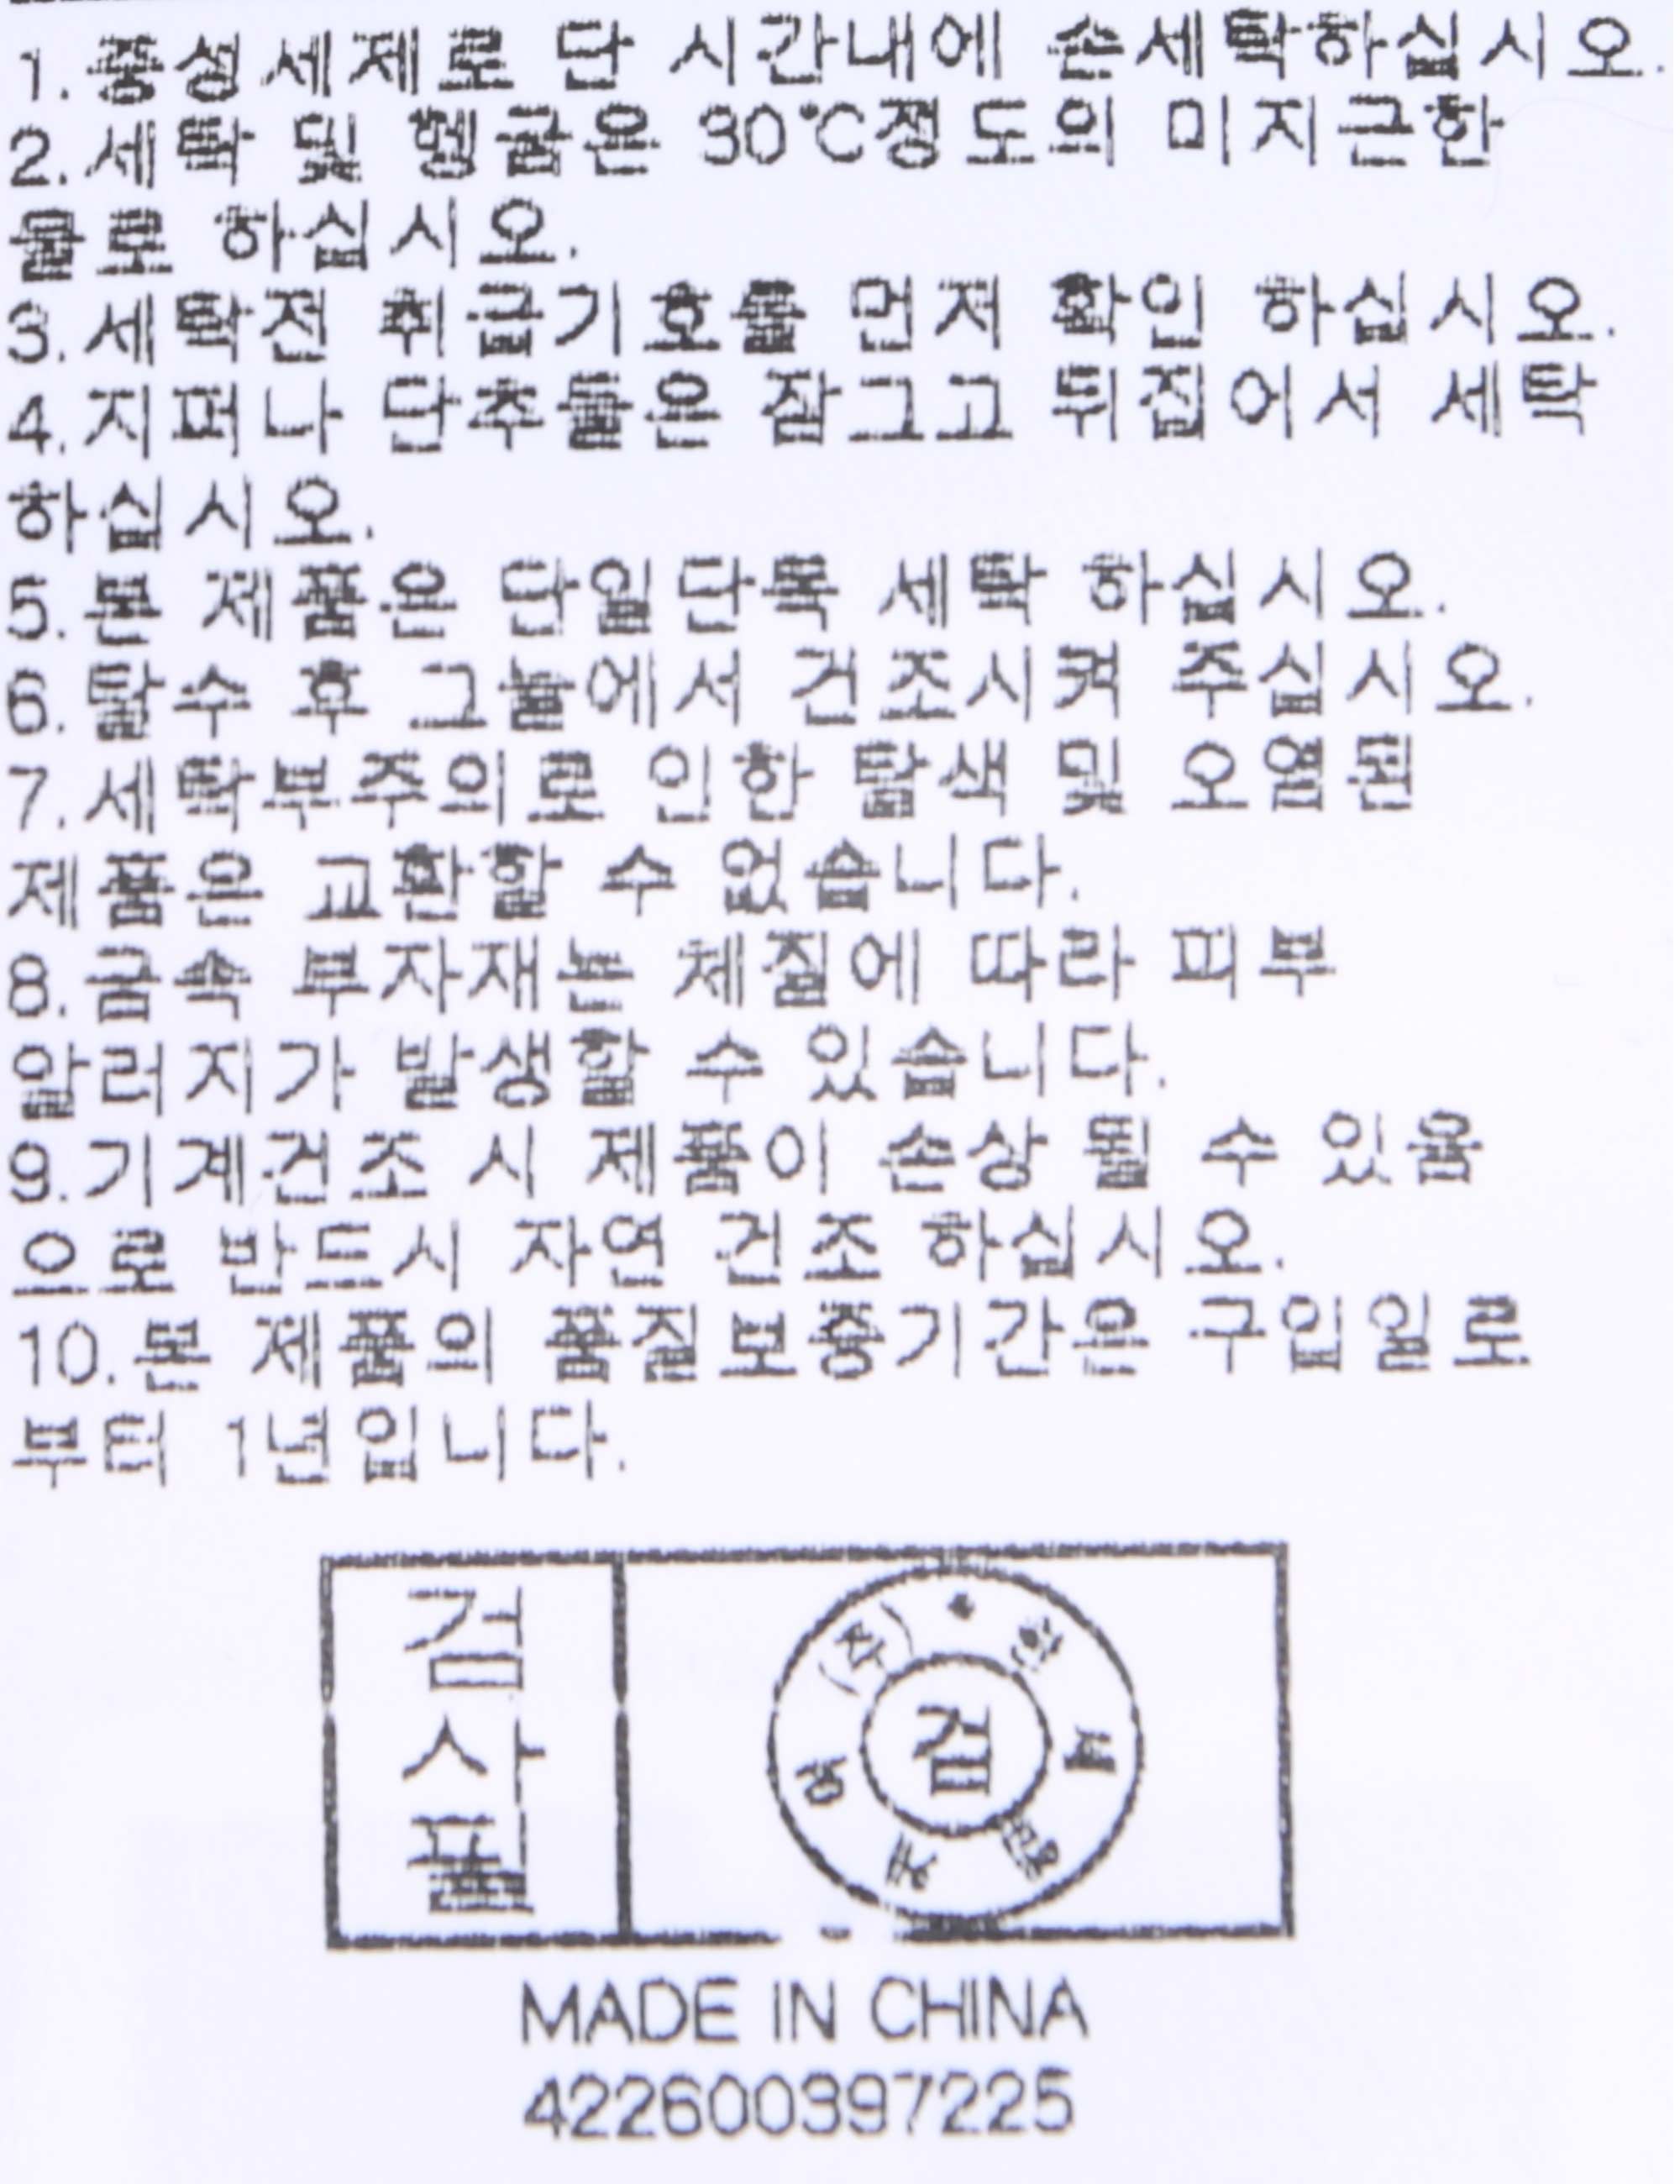 1.풍성세제로 단 시간내에 손세탁하십시오.
2.세탁 및 헹굼은 30℃정도의 미지근한
물로 하십시오.
3.세탁전 취급기호를 먼저 확인 하십시오.
4.지퍼나 단추들은 잠그고 뒤집어서 세탁
하십시오.
5.본 제품은 단일단독 세탁 하십시오.
6.탈수 후 그늘에서 건조시켜 주십시오.
7.세탁부주의로 인한 탈색 및 오염된
제품은 교환할 수 없습니다.
8.금속 부자재는 체질에 따라 피부
알러지가 발생할 수 있습니다.
9.기계건조 시 제품이 손상 될 수 있음
으로 반드시 자연 건조 하십시오.
10.본 제품의 품질보증기간은 구입일로
부터 1년입니다.
검사필
(주)
검
MADE IN CHINA
422600397225